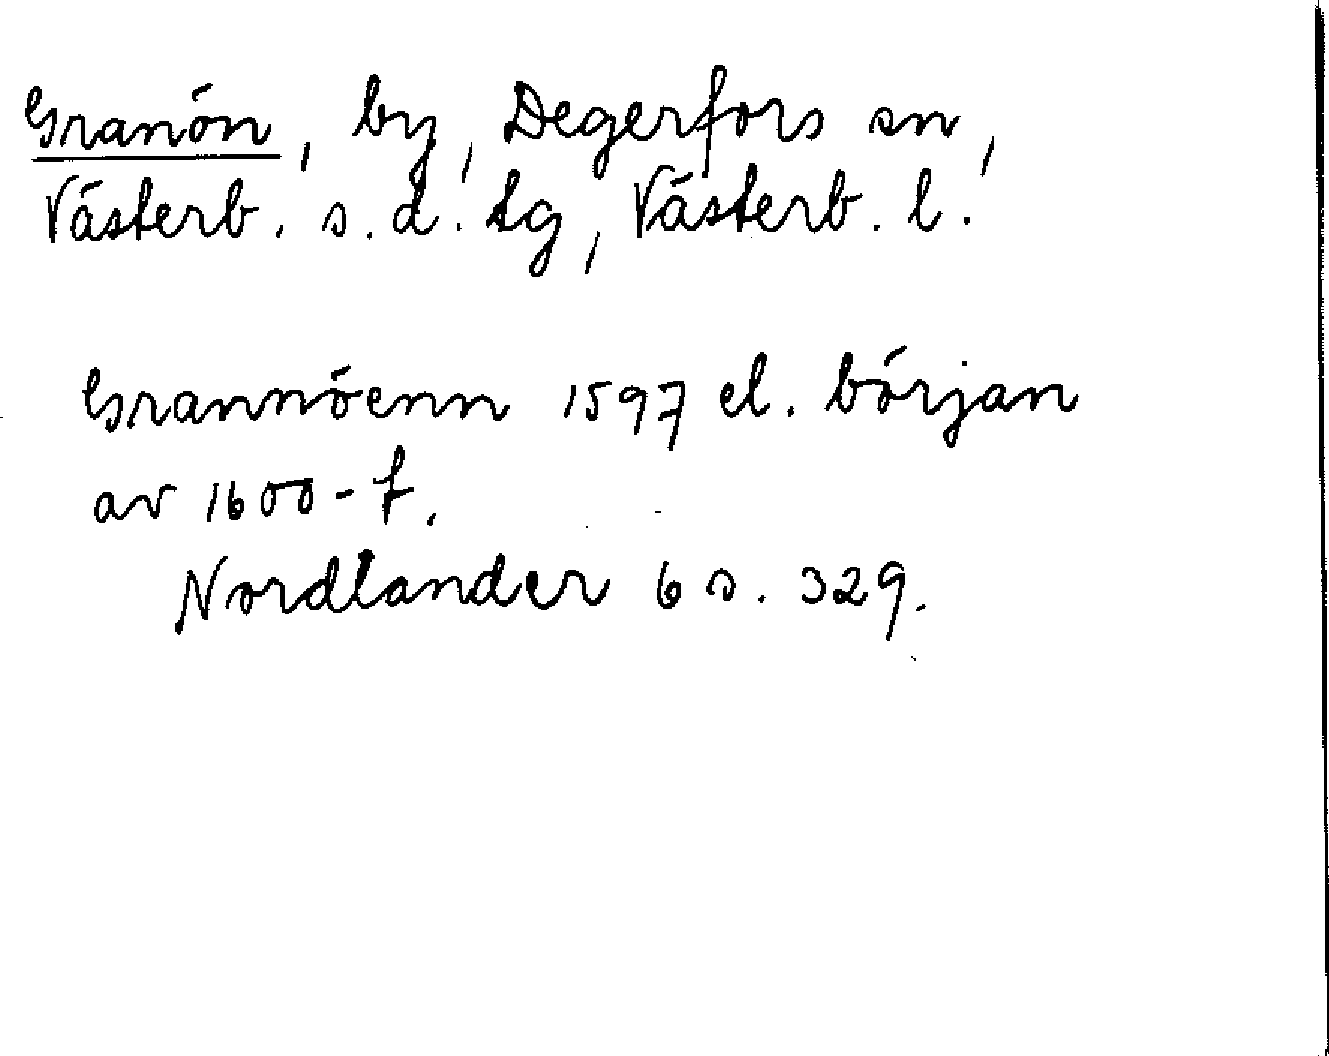 Granön, by, Degerfors sn,
Västerb. s. d. tg, Västerb. l.
Grannöenn 1597 el. början
av 1600-t.
Nordlander 6 s. 329.